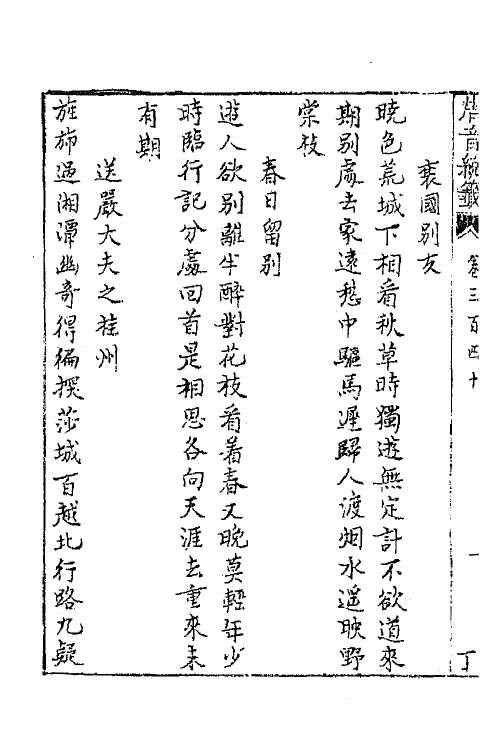 唐音統籤
卷三百四十
一
丁
褒國別友
曉色荒城下相看秋草時獨遊無定計不欲道來
期別處去家遠愁中驅馬遲歸人渡烟水遥映野
棠枝
春日留別
遊人欲別離半醉對花枝看着春又晚莫輕年少
時臨行記分處回首是相思各向天涯去重來未
有期
送嚴大夫之桂州
旌斾過湘潭幽奇得徧探莎城百越北行路九疑